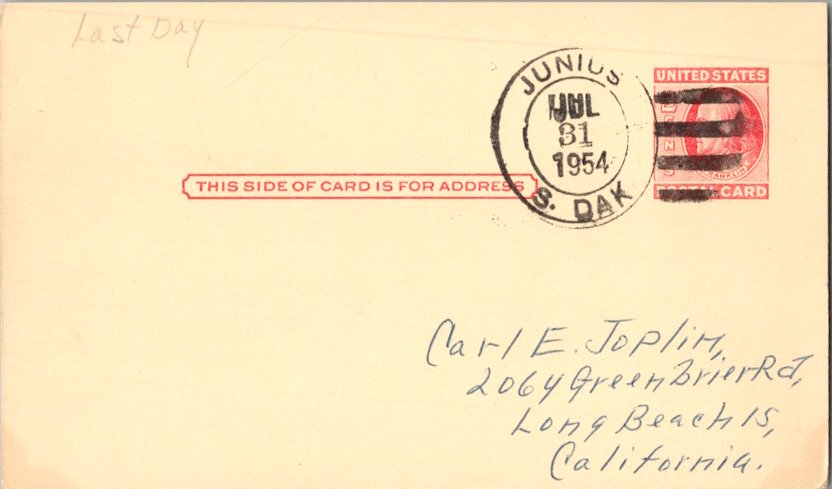 Last Day
JUNIUS
JUL
31
1954
S. DAK
UNITED STATES
POSTAL CARD
THIS SIDE OF CARD IS FOR ADDRESS
Carl E. Joplin,
2064 Greenbrier Rd,
Long Beach 15,
California.